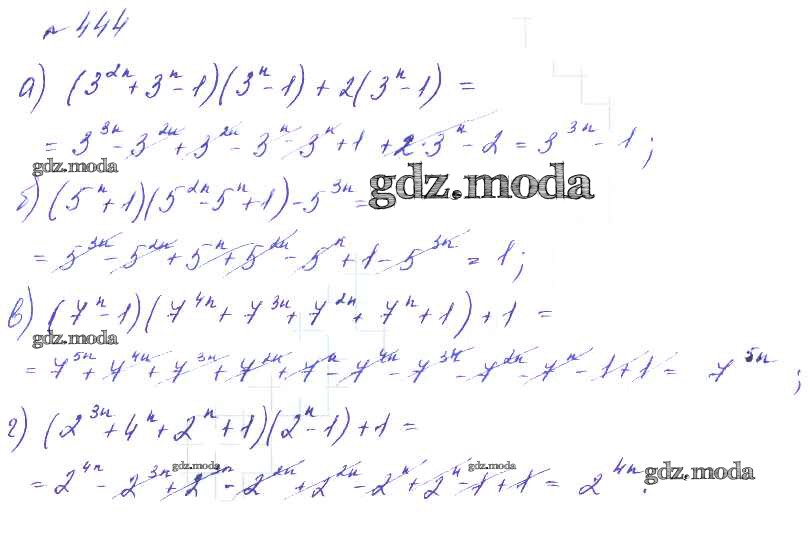 № 444
а) (3^{2n} + 3^n - 1)(3^n - 1) + 2(3^n - 1) =
= 3^{3n} - 3^{2n} + 3^{2n} - 3^n - 3^n + 1 + 2·3^n - 2 = 3^{3n} - 1;
gdz.moda
gdz.moda
б) (5^n + 1)(5^{2n} - 5^n + 1) - 5^{3n} =
= 5^{3n} - 5^{2n} + 5^n + 5^{2n} - 5^n + 1 - 5^{3n} = 1;
в) (7^n - 1)(7^{4n} + 7^{3n} + 7^{2n} + 7^n + 1) + 1 =
gdz.moda
= 7^{5n} + 7^{4n} + 7^{3n} + 7^{2n} + 7^n - 7^{4n} - 7^{3n} - 7^{2n} - 7^n - 1 + 1 = 7^{5n};
г) (2^{3n} + 4^n + 2^n + 1)(2^n - 1) + 1 =
gdz.moda
gdz.moda
= 2^{4n} - 2^{3n} + 2^{3n} - 2^{2n} + 2^{2n} - 2^n + 2^n - 1 + 1 = 2^{4n}.
gdz.moda